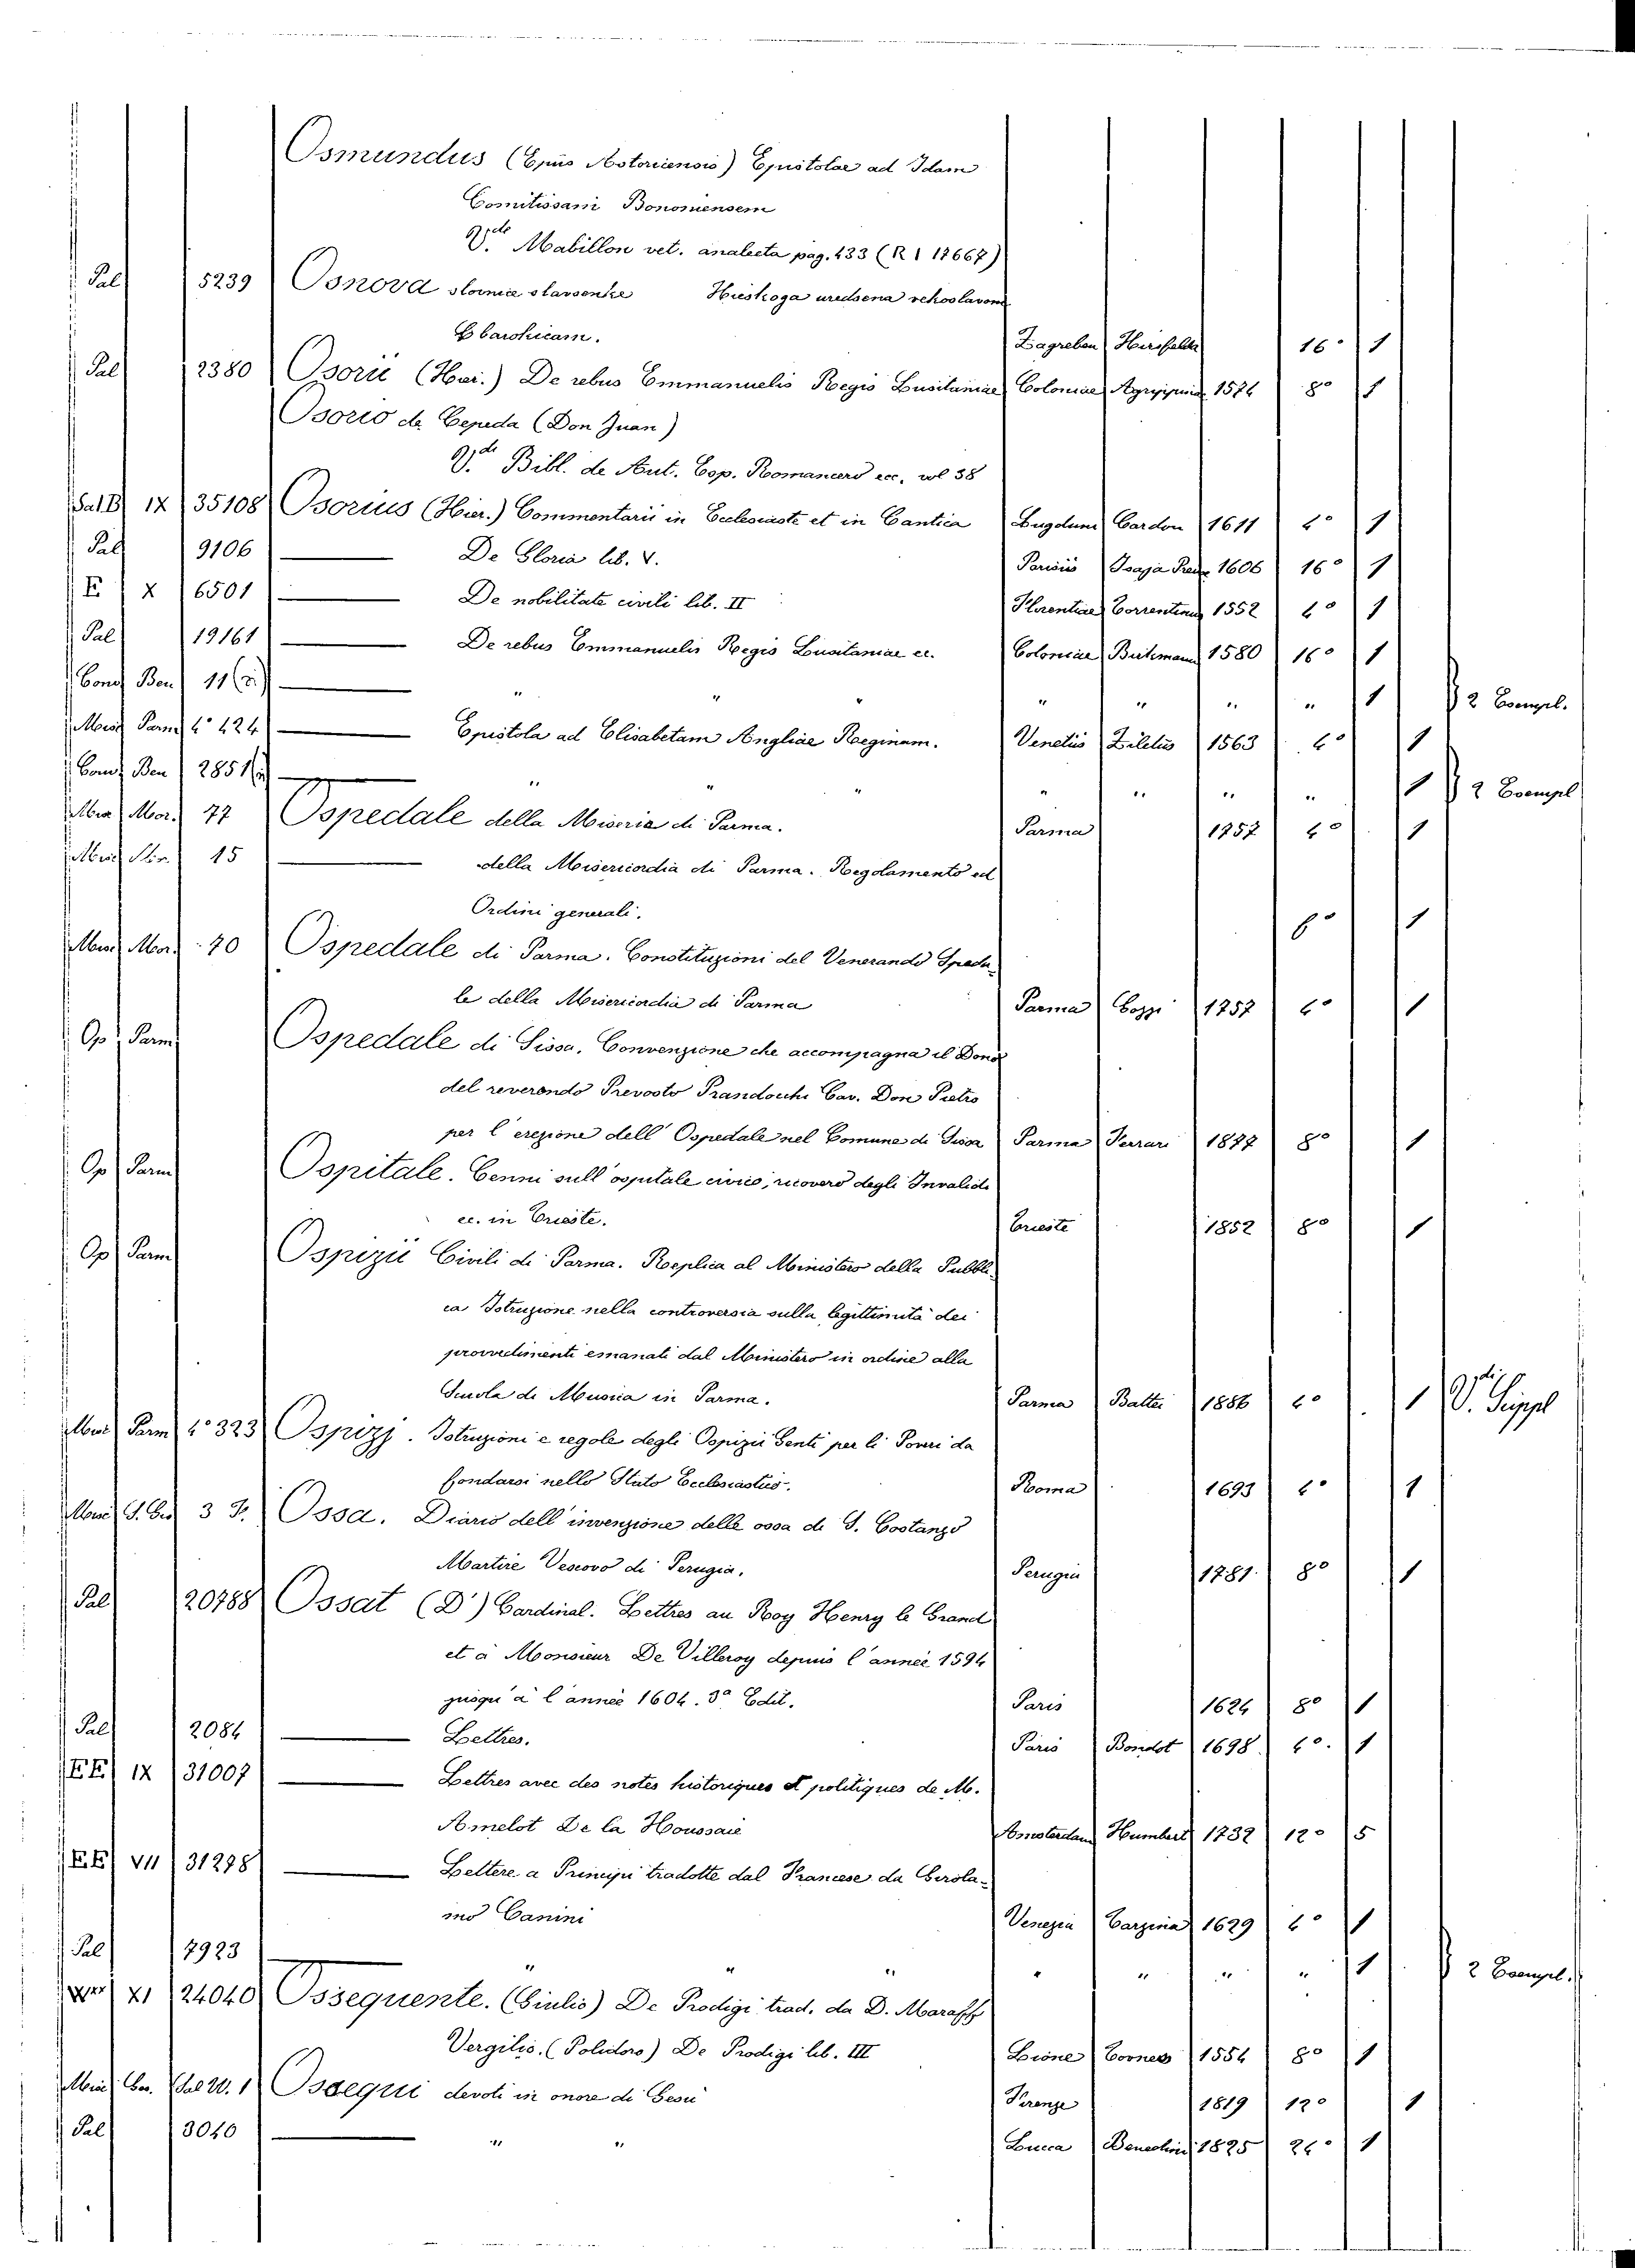 Osmundus (Epūs Astoricensis) Epistolae ad Idam
Comitissam Bononiensem
V.de Mabillon vet. analecta pag. 433 (R I 17667)
Pal 5239 Osnova slovnice slavsenke Hieskoga uredsena rehoslavom
Ebarchicam. Zagreben Hirsfelde 16° 1
Pal 2380 Osorii (Her.) De rebus Emmanuelis Regis Lusitaniae Coloniae Agrippinae 1574 8° 1
Osorio de Cepeda (Don Juan)
V.de Bibl. de Aut. Esp. Romancero ecc. vol 38
Sal B IX 35108 Osorius (Hier.) Commentarii in Ecclesiaste et in Cantica Lugdun Cardon 1611 4° 1
Pal 9106 De Gloria lib. V. Parisiis Isaja 1606 16° 1
E X 6501 De nobilitate civili lib. II Florentiae Torrentinus 1552 4° 1
Pal 19161 De rebus Emmanuelis Regis Lusitaniae ec. Coloniae Birkmann 1580 16° 1
Cond Ben 11 " " " " " " " 1 2 Esempl.
Misc Parm 4° 424 Epistola ad Elisabetam Angliae Reginam. Venetiis Ziletus 1563 4° 1
Cond Ben 2851 " " " " " " " 1 2 Esempl
Misc Mor. 77 Ospedale della Miseria di Parma. Parma 1757 4° 1
Misc Stor. 15 della Misericordia di Parma. Regolamento ed
Ordini generali. 6° 1
Misc Mor. 70 Ospedale di Parma. Constituzioni del Venerando Speda-
le della Misericordia di Parma Parma Gozzi 1757 4° 1
Op Parm Ospedale di Sissa, Convenzione che accompagna il Dono
del reverendo Prevosto Prandocchi Cav. Don Pietro
per l'erezione dell'Ospedale nel Comune di Sissa Parma Ferrari 1877 8° 1
Op Parm Ospitale. Cenni sull'ospitale civico, ricovero degli Invalidi
ec. in Trieste. Trieste 1852 8° 1
Op Parm Ospizii Civili di Parma. Replica al Ministero della Pubbli-
ca Istruzione nella controversia sulla legittimità dei
provvedimenti emanati dal Ministero in ordine alla
Scuola di Musica in Parma. Parma Battei 1886 4° 1 V.di Suppl
Misc Parm 4° 323 Ospizj. Istruzioni e regole degli Ospizii Genti per li Poveri da
fondarsi nello Stato Ecclesiastico. Roma 1693 4° 1
Misc S. Ecc 3 F. Ossa. Diario dell'invenzione delle ossa di S. Costanzo
Martire Vescovo di Perugia. Perugia 1781. 8° 1
Pal 20788 Ossat (D') Cardinal. Lettres au Roy Henry le Grand
et à Monsieur De Villeroy depuis l'année 1594
jusqu'à l'année 1604. 3a Edit. Paris 1624 8° 1
Pal 2084 Lettres. Paris Boudot 1698 4°. 1
EE IX 31007 Lettres avec des notes historiques et politiques de M.
Amelot De la Houssaie Amsterdam Humbert 1732 12° 5
EE VII 31278 Lettere a Principi tradotte dal Francese da Girola-
mo Canini Venezia 1629 4° 1
Pal 7923 " " " " " " " 1 2 Esempl.
XI 24040 Ossequente. (Giulio) De Prodigi trad. da D. Maraff
Vergilio. (Polidoro) De Prodigi lib. III Lione Tornes 1554 8° 1
Misc Sal W. 1 Ossequi devoti in onore di Gesù Firenze 1819 12° 1
Pal 3040 " " Lucca Benedini 1825 24° 1